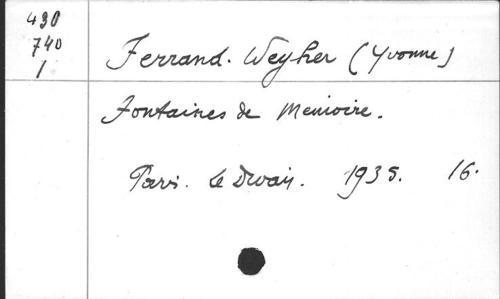 490
740
1
Ferrand-Weyher (Yvonne)
Fontaines de Mémoire.
Paris. Le Divan. 1935. 16.